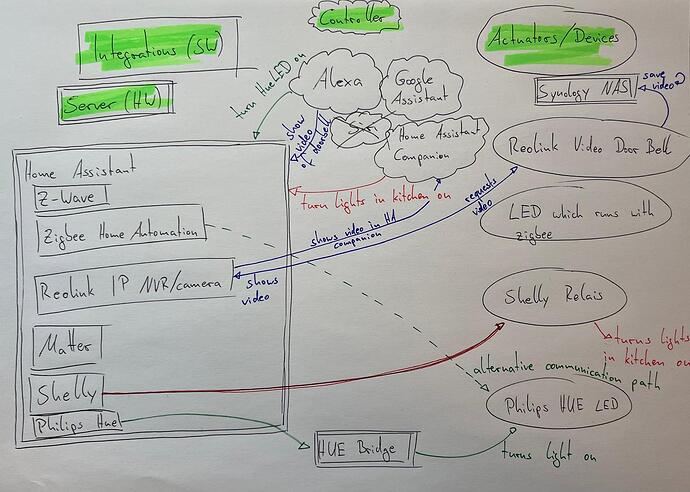 Integrations (SW)
Server (HW)
Controller
Actuators/Devices
turn Hue LED on
Alexa
Google
Assistant
Home Assistant
Companion
Synology NAS
save
video
show
video
of doorbell
Reolink Video Door Bell
turn lights in kitchen on
requests
video
LED which runs with
zigbee
Home Assistant
Z-Wave
Zigbee Home Automation
Reolink IP NVR/camera
shows video in HA
companion
shows
video
Matter
Shelly
Philips Hue
Shelly Relais
turns lights
in kitchen on
alternative communication
path
Philips HUE LED
HUE Bridge
turns light on